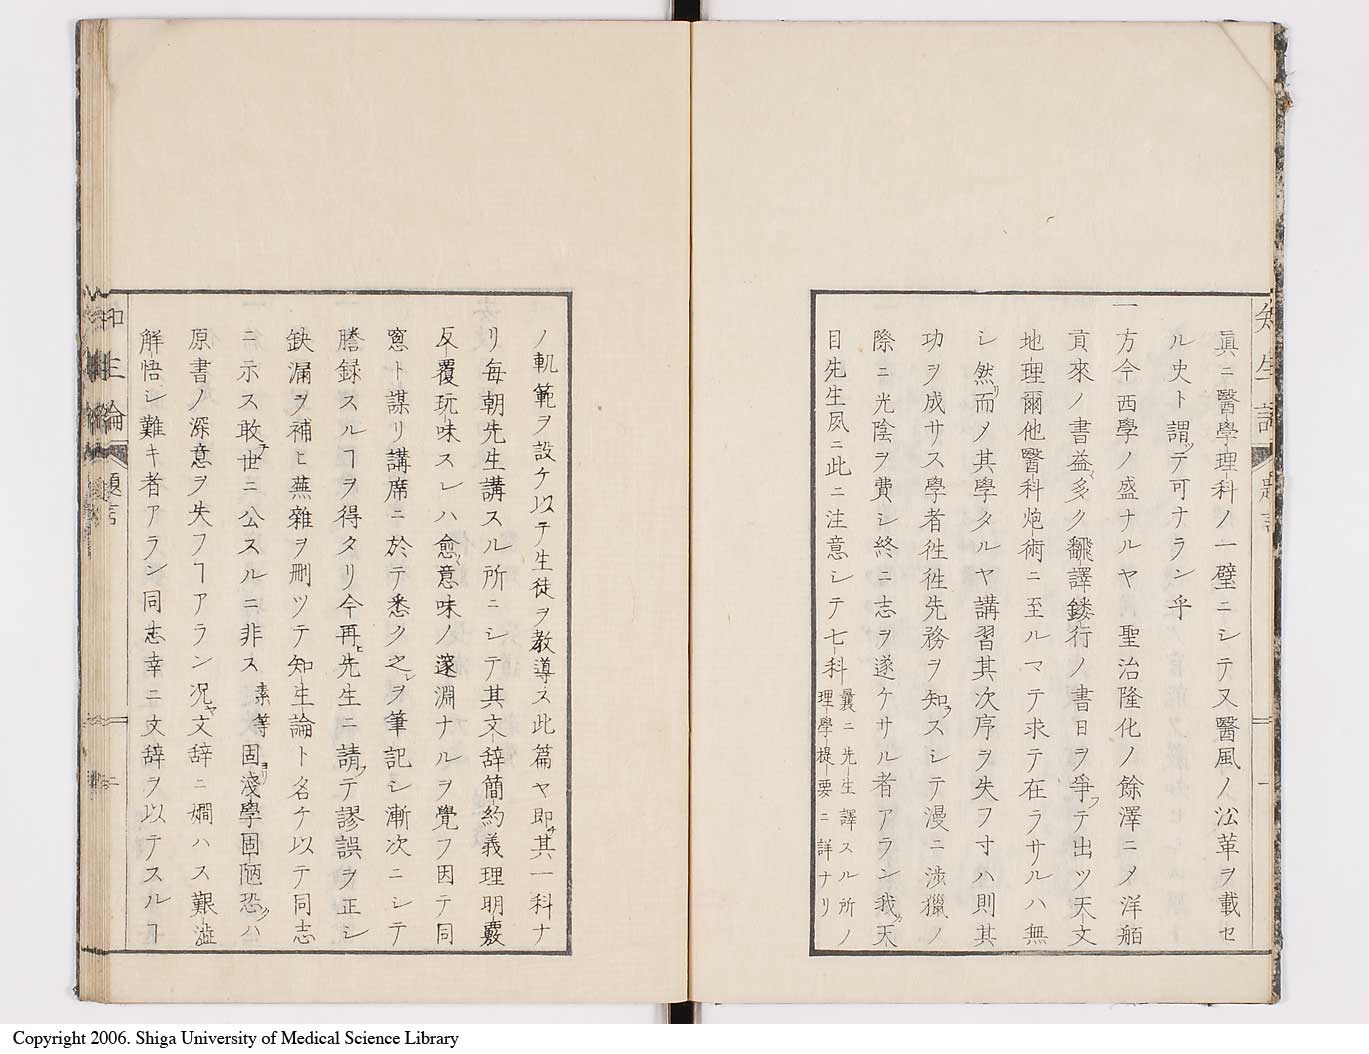 眞ニ醫學理科ノ一璧ニシテ又醫風ノ㳂革ヲ載セ
ル史ト謂ッテ可ナランヤ乎
一方今西學ノ盛ナルヤ 聖治隆化ノ餘澤ニメ洋舶
貢來ノ書益多ク飜譯鏤行ノ書日ヲ爭フテ出ツ天文
地理爾他醫科炮術ニ至ルマテ求テ在ラサルハ無
シ然リ而ノ其學タルヤ講習其次序ヲ失ヲ寸ハ則其
功ヲ成サス學者徃徃先務ヲ知ラスシテ漫ニ涉獵ノ
際ニ光陰ヲ費シ終ニ志ヲ遂ケサル者アラン我カ天
目先生夙ニ此ニ注意シテ七科曩ニ先生譯スル所ノ
理學提要ニ詳ナリ
ノ軌範ヲ設ケ以テ生徒ヲ教導ス此篇ヤ即チ其一科ナ
リ每朝先生講スル所ニシテ其文辞簡約義理明覈
反覆玩味スレハ愈意味ノ邃淵ナルヲ覺フ因テ同
窓ト謀リ講席ニ於テ悉ク之レヲ筆記シ漸次ニシテ
謄録スルヿヲ得タリ今再ヒ先生ニ請フテ謬誤ヲ正シ
缺漏ヲ補ヒ蕪雜ヲ刪ツテ知生論ト名ケ以テ同志
ニ示ス敢テ世ニ公スルニ非ス 素等固ヨリ淺學固陋恐クハ
原書ノ深意ヲ失フヿアラン况ヤ文辞ニ嫺ハス艱澁
解悟シ難キ者アラン同志幸ニ文辞ヲ以テスルヿ
知生論
題言
Copyright 2006. Shiga University of Medical Science Library